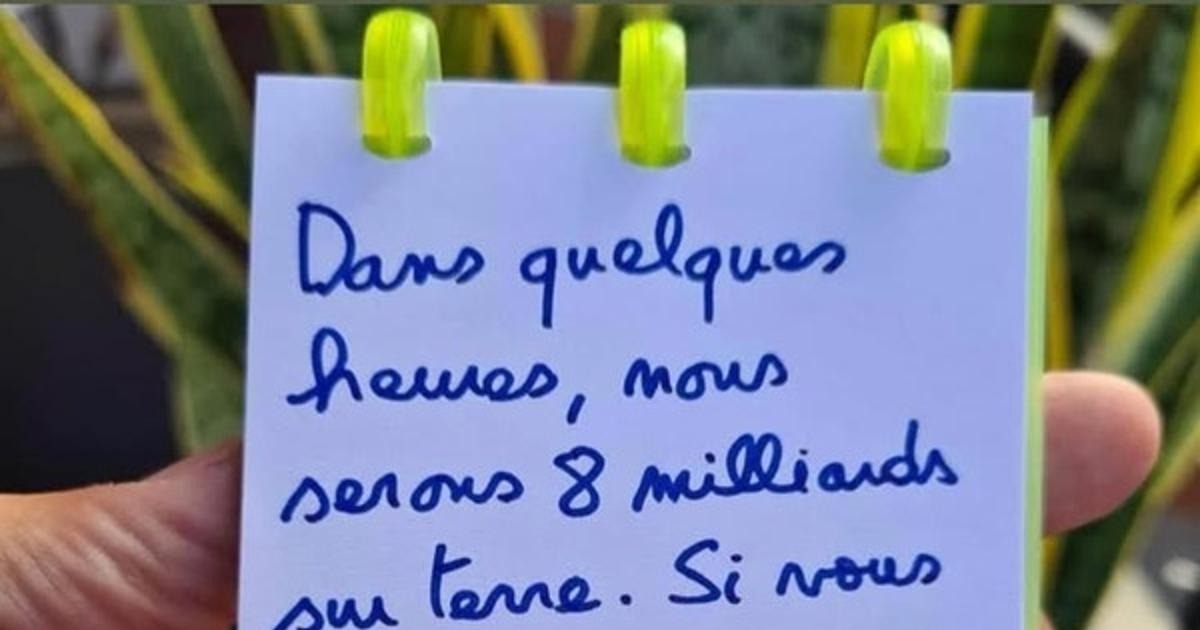 Dans quelques
heures, nous
serons 8 milliards
sur terre. Si vous